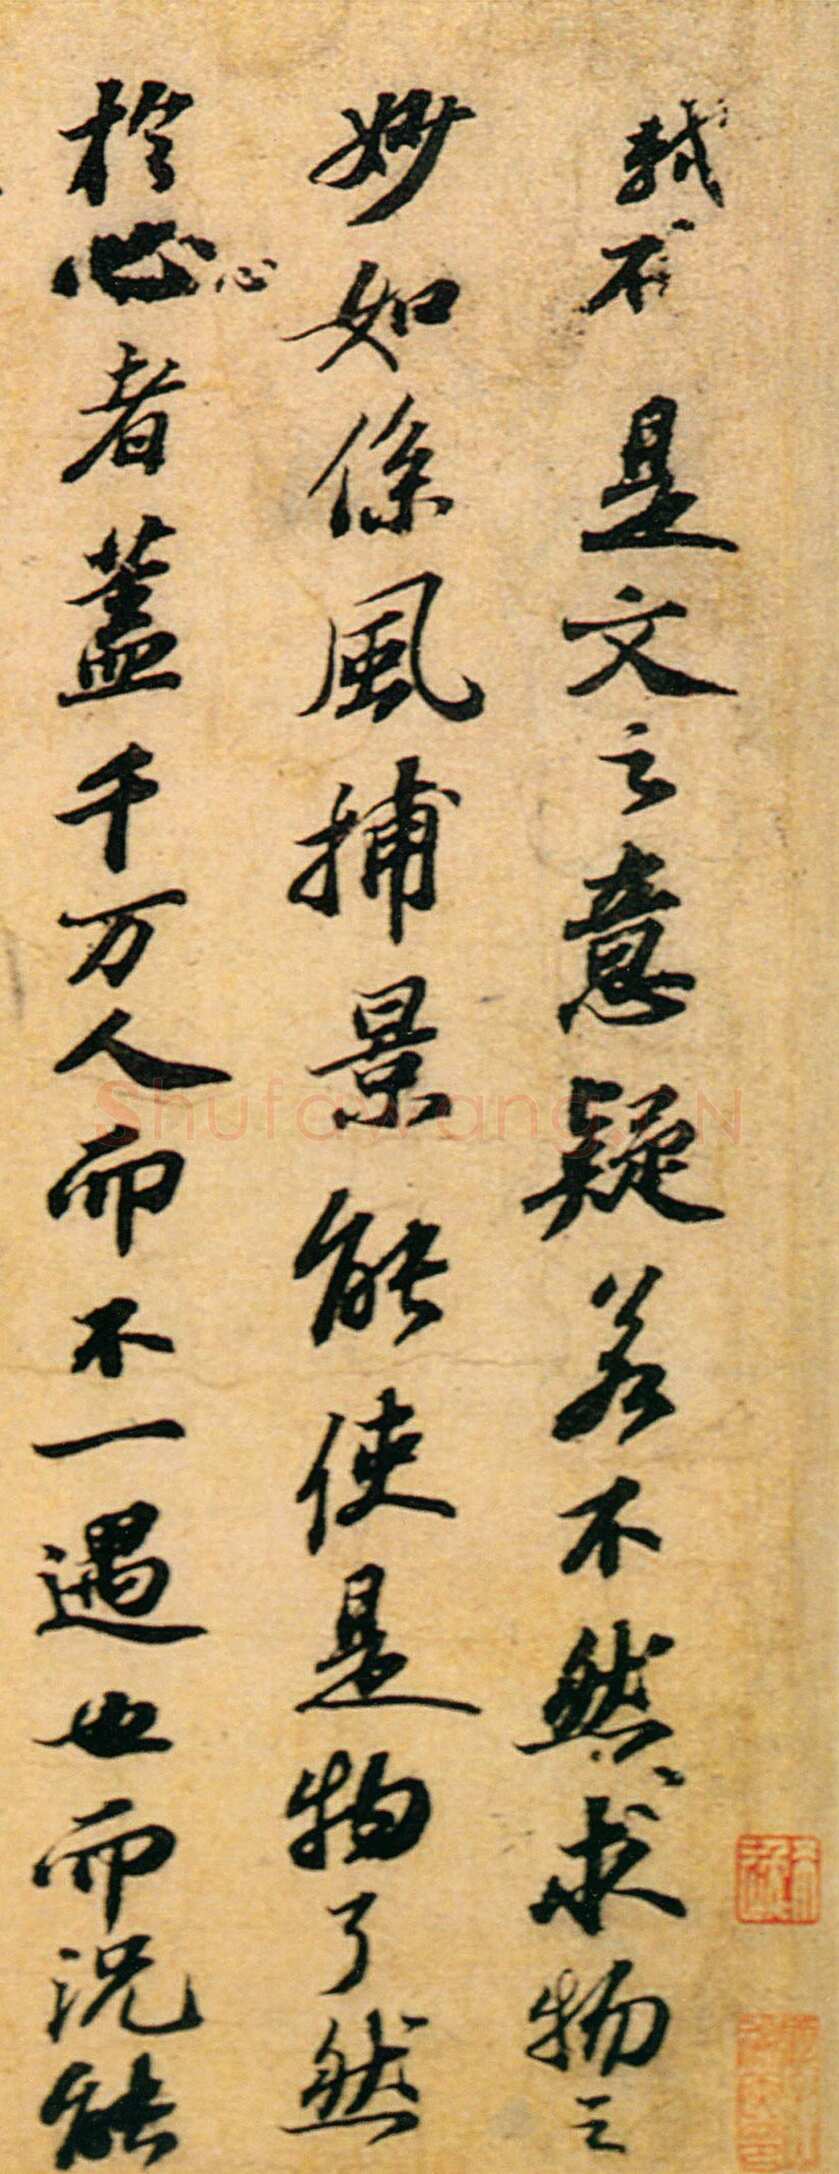 軾不 是文之意疑若不然求物之
妙如係風捕景能使是物了然
於心心者蓋千万人而不一遇也而況能
Shufawang.CN